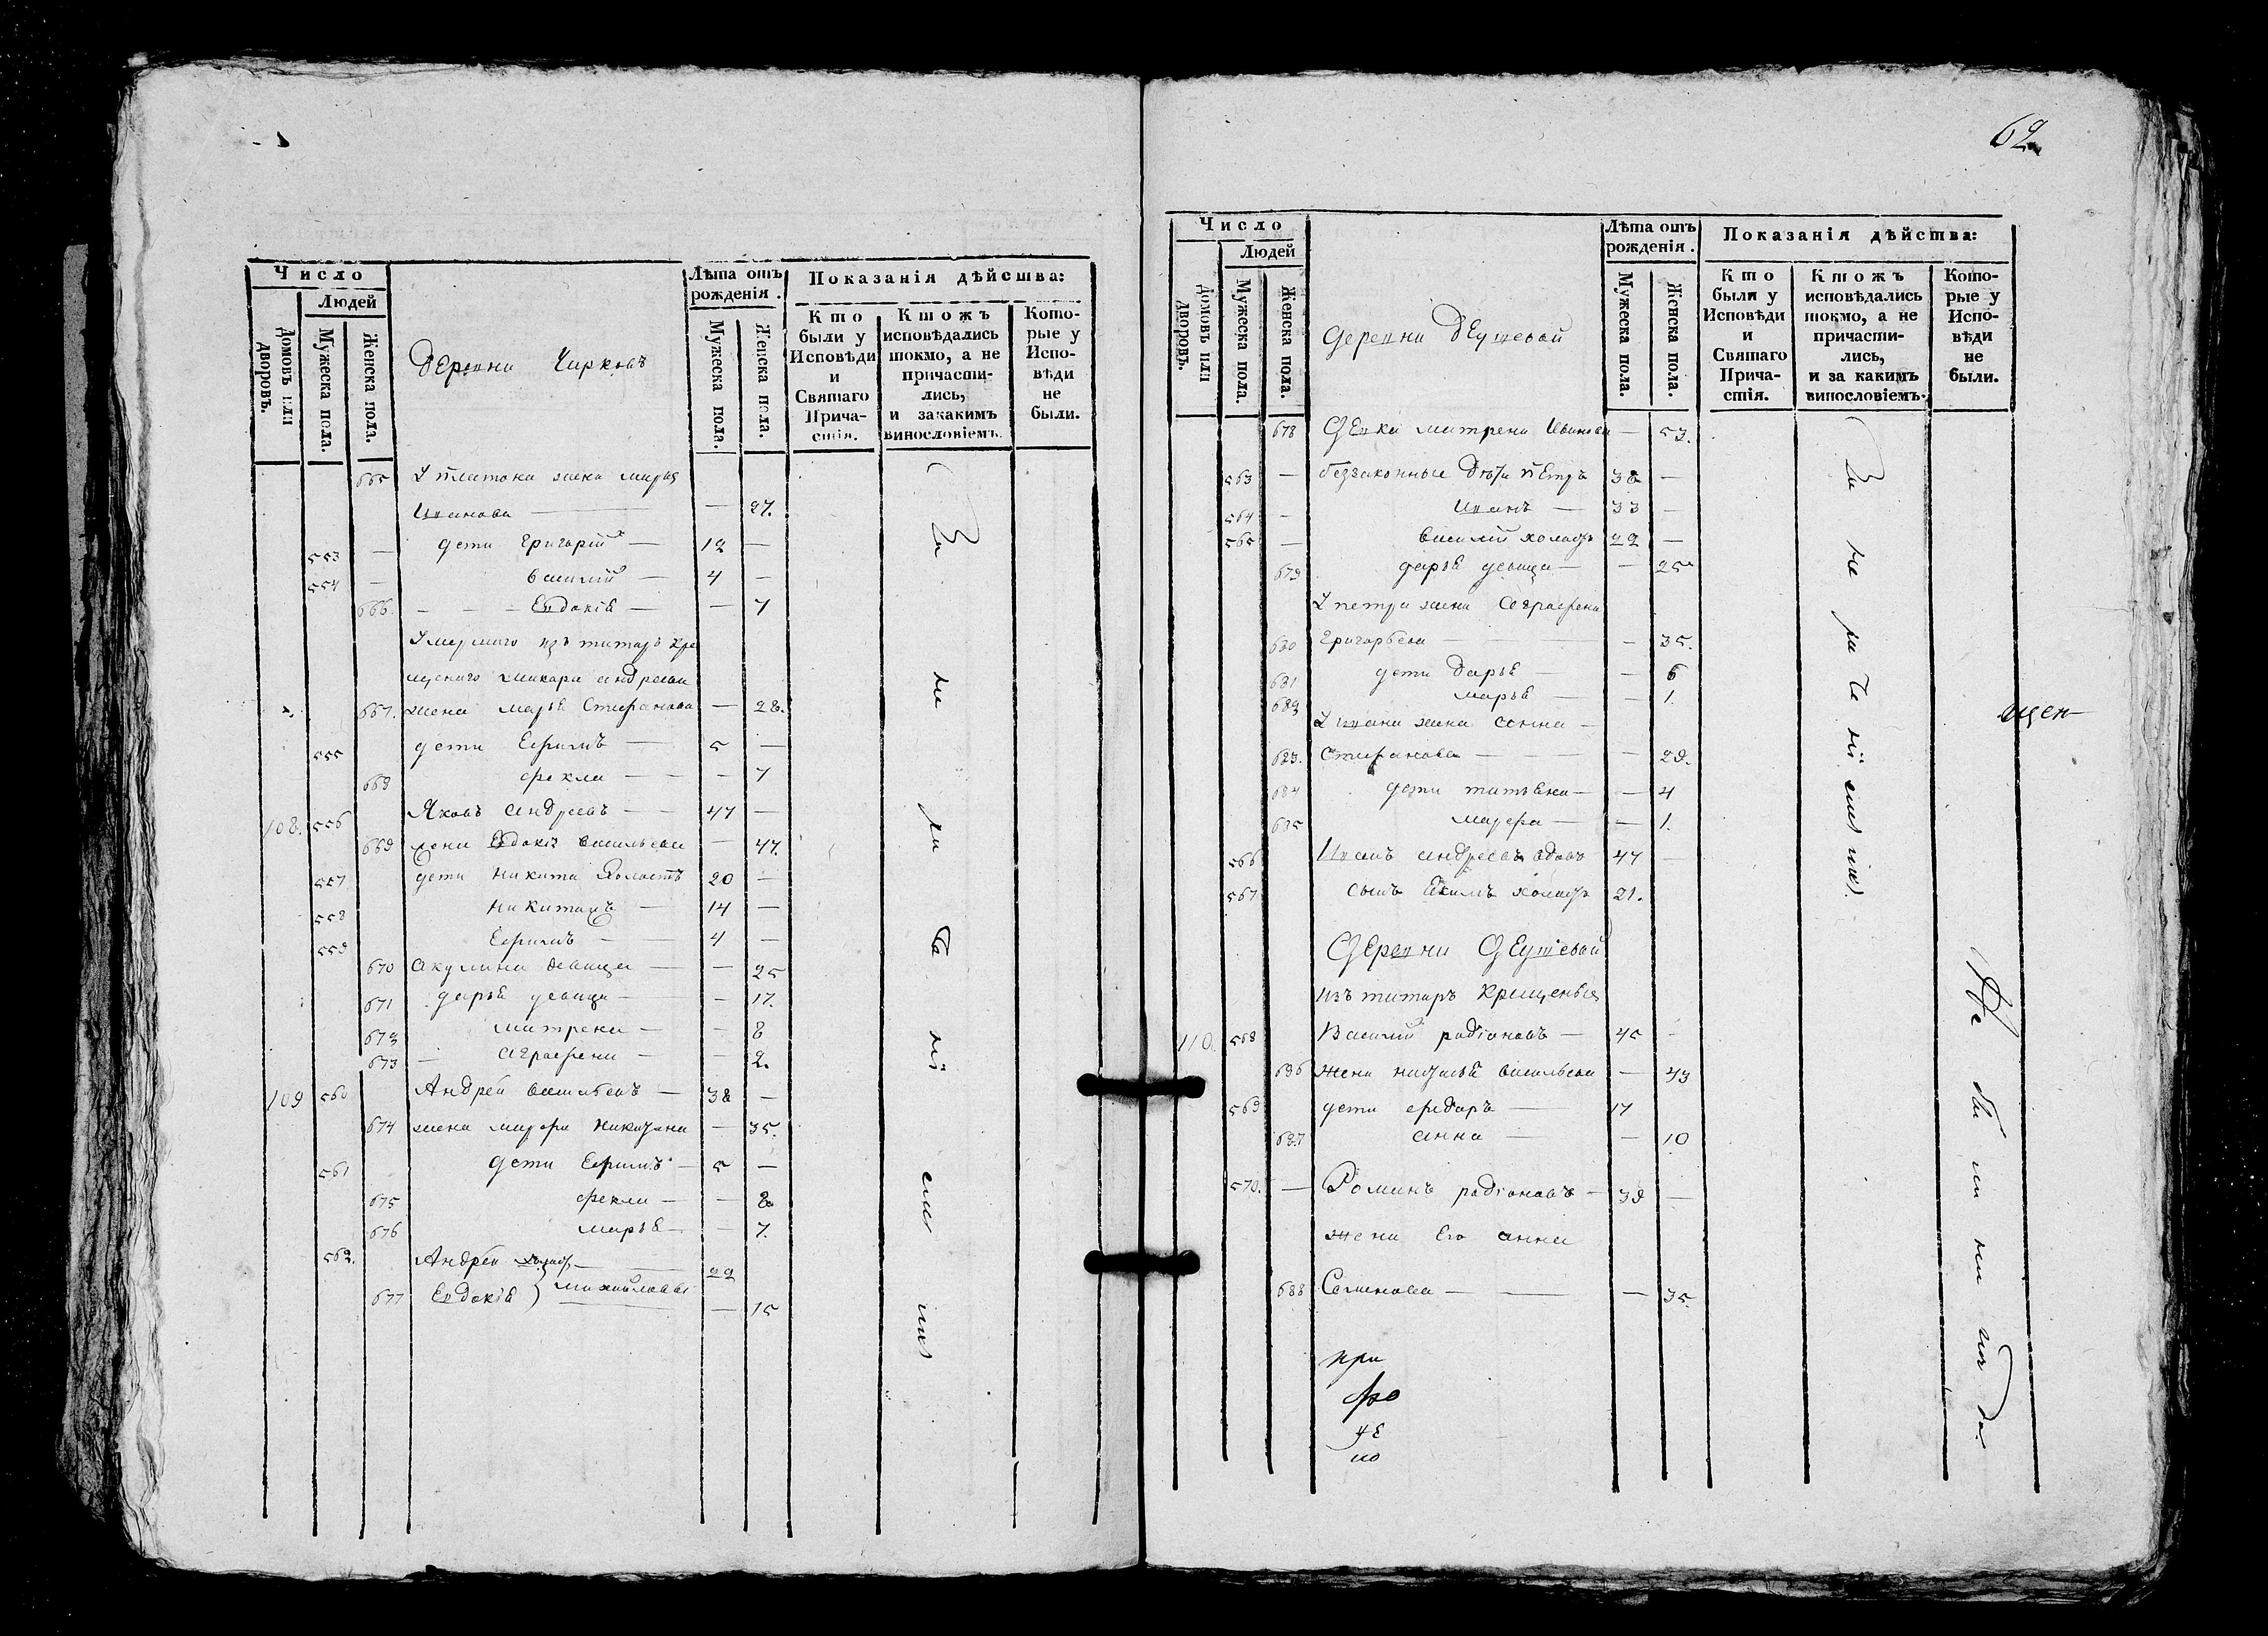 Число
Людей
Домовъ или дворовъ.
Мужеска пола.
Женска пола.
Лѣта отъ рожденія.
Мужеска пола.
Женска пола.
Показанія дѣйства:
Кто были у Исповѣди и Святаго Причастія.
Ктожъ исповѣдались токмо, а не причастились, и закакимъ винословіемъ.
Которые у Исповѣди не были.
деревни Чирковъ
665 У платона жена марья
Иванова — 27.
553 — дети григорій — 12 —
554 — василій — 4 —
666. Евдокія — — 7
Умершаго изъ татаръ кре
щенаго макара андреева
667. жена марья Стефанова — 28.
555 дети Ефимъ — 5 —
669 фекла — — 7
108. 556 Яковъ андреевъ — 47 —
669 жена Евдокія васильева — 47.
557 дети никита холостъ 20 —
558 никита — 14 —
559 Ефимъ — 4 —
670 акулина девица — — 25
671 дарья девица — — 17.
672 матрена — — 8
673 — аграфена — — 2.
109 560 Андрей васильевъ — 38 —
674 жена марфа — 35.
561 дети Ефимъ — 5 —
675 фекла — — 8
676 марья — — 7.
562. Андрей — 22
677 Евдокія } михайловы — 15
За нерачені емъ
62
Число
Людей
Домовъ или дворовъ.
Мужеска пола.
Женска пола.
Лѣта отъ рожденія.
Мужеска пола.
Женска пола.
Показанія дѣйства:
Кто были у Исповѣди и Святаго Причастія.
Ктожъ исповѣдались токмо, а не причастились, и за какимъ винословіемъ.
Которые у Исповѣди не были.
деревни
678 Девка матрена Иванова — 53.
563 — беззаконные дети петръ 38 —
564 — Иванъ — 33 —
565 — василій холостъ 22 —
679 дарья девица — — 25
У петра жена аграфена
680 григорьева — — 35.
681 дети дарья — — 6
682 марья — — 1.
У ивана жена анна —
683. Стефанова — — 29.
684 дети татьяна — — 4
685 марфа — — 1.
566 Иванъ андреевъ вдовъ 47 —
567 сынъ Екимъ холостъ 21.
Деревни
изъ татаръ крещеныя
110. 568 Василій радіоновъ — 45 —
686 жена наталья васильева — 43
569 дети федоръ — 17
687 анна — — 10
570. — Романъ радіоновъ — 39 —
жена его анна
688 Семенова — — 35.
при
фо
це
но
За не ра че ні емъ
щен